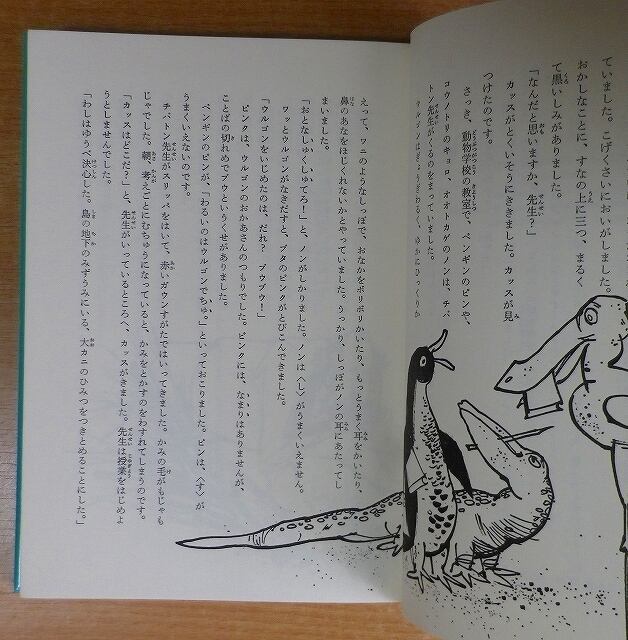 ていました。こげくさいにおいがしました。
おかしなことに、すなの上に三つ、まるく
て黒いしみがありました。
「なんだと思いますか、先生？」
カッスがとくいそうにききました。カッスが見
つけたのです。
さっき、動物学校の教室で、ペンギンのピンや、
コウノトリのキョロ、オオトカゲのノンは、チバ
トン先生がくるのをまっていました。
ウルゴンはぎょうぎわるく、ゆかにひっくりか
えって、ワニのようなしっぽで、おなかをボリボリかいたり、もっとうまく耳をかいたり、
鼻のあなをほじくれないかとやっていました。うっかり、しっぽがノンの耳にあたってし
まいました。
「おとなしゅくしゅてろ！」と、ノンがしかりました。ノンは〈し〉がうまくいえません。
ワッとウルゴンがなきだすと、ブタのピンクがとびこんできました。
「ウルゴンをいじめたのは、だれ？　ブウブウ！」
ピンクは、ウルゴンのおかあさんのつもりでした。ピンクには、なまりはありませんが、
ことばの切れめでブウというくせがありました。
ペンギンのピンが、「わるいのはウルゴンでちゅ。」といっておこりました。ピンは、〈す〉が
うまくいえないのです。
チバトン先生がスリッパをはいて、赤いガウンすがたではいってきました。かみの毛がもじゃも
じゃでした。朝、考えごとにむちゅうになっていると、かみをとかすのをわすれてしまうのです。
「カッスはどこだ？」と、先生がいっているところへ、カッスがきました。先生は授業をはじめよ
うとしませんでした。
「わしはゆうべ決心した。島の地下のみずうみにいる、大カニのひみつをつきとめることにした。」